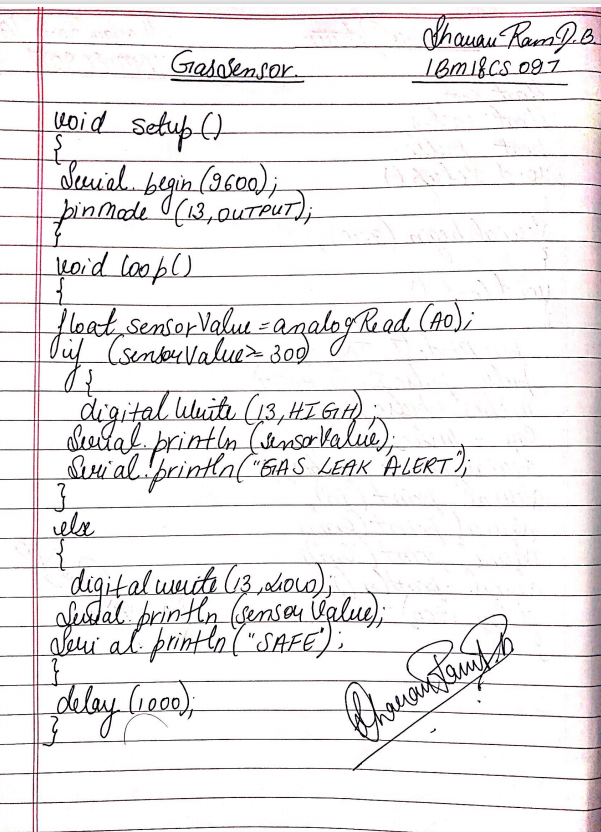 Sharan Ram D.B.
GasSensor.
1BM18CS097
void setup()
{
Serial.begin(9600);
pinMode (13,OUTPUT);
}
void loop()
{
float sensorValue=analogRead (A0);
if (sensorValue>= 300)
{
digitalWrite (13,HIGH);
Serial.println (sensorValue);
Serial.println("GAS LEAK ALERT");
}
else
{
digitalwrite (13,LOW);
Serial.println (sensorValue);
Serial.println("SAFE");
}
delay (1000);
}
Sharan Ram D.B